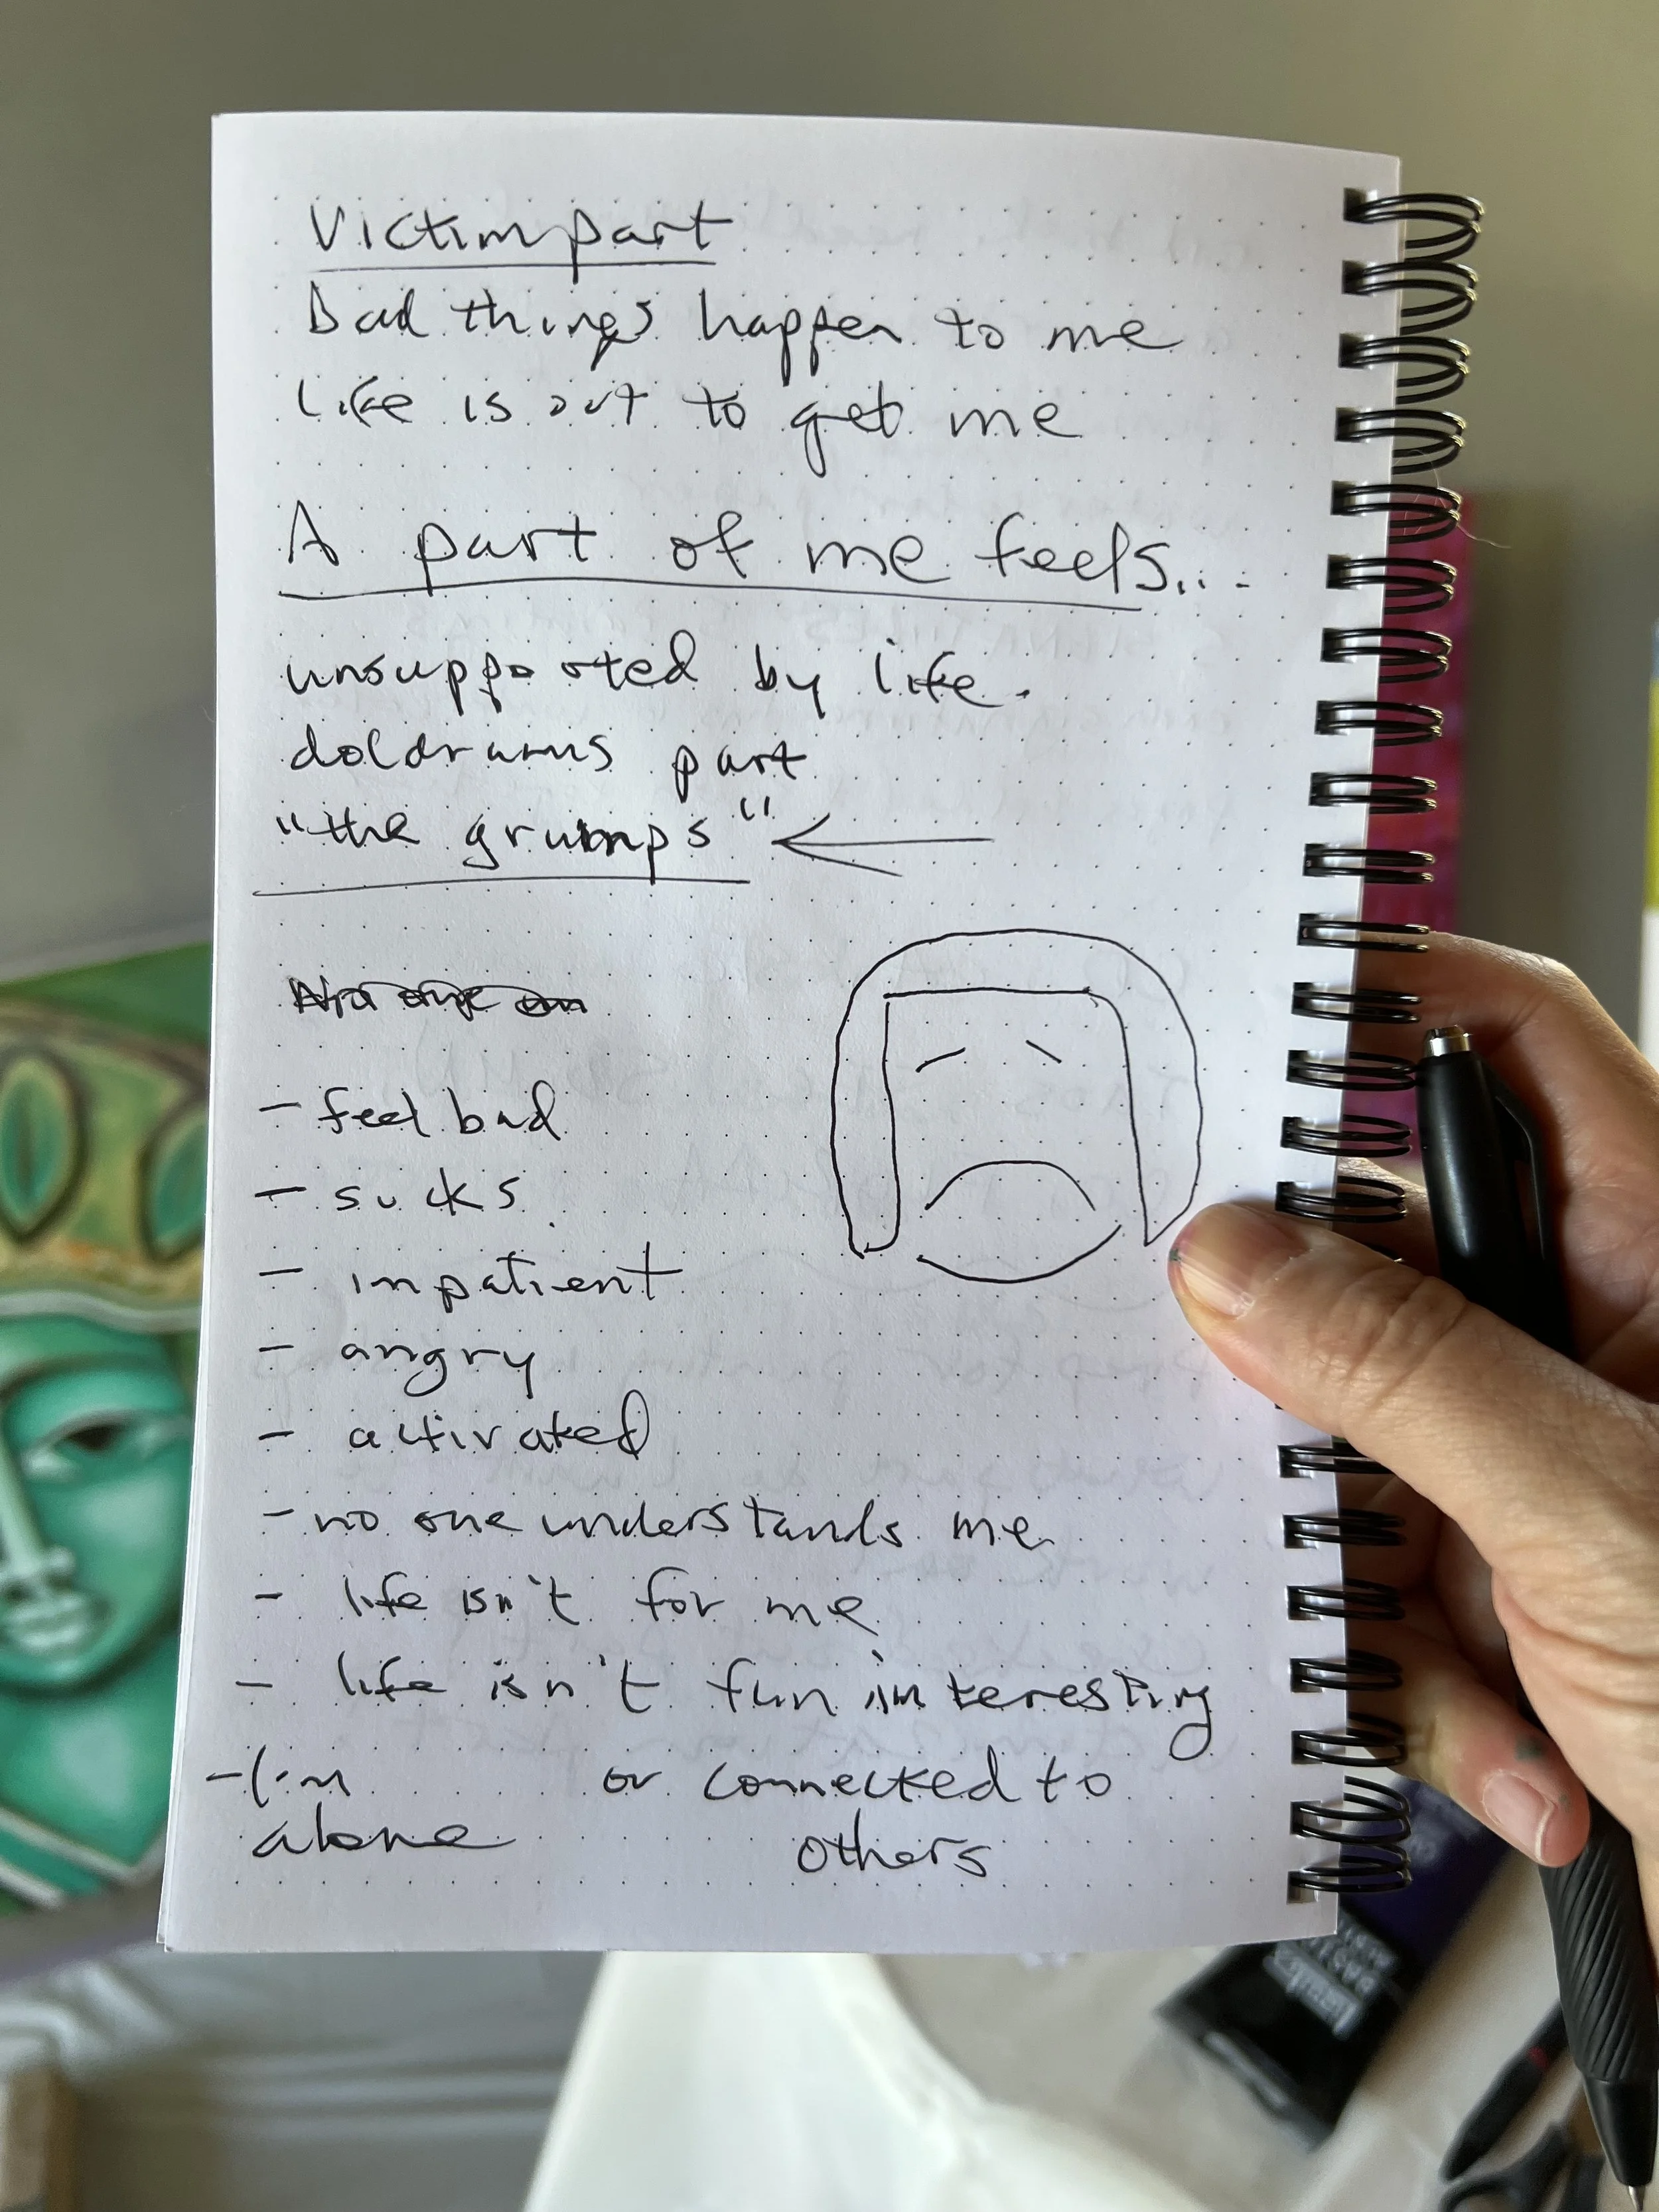 Victim part
Bad things happen to me
life is out to get me
A part of me feels...
unsupported by life.
doldrums part
"the grumps"
- feel bad
- sucks
- inpatient
- angry
- activated
- no one understands me
- life isn't for me
- life isn't fun interesting
or connected to
others
- I'm
alone